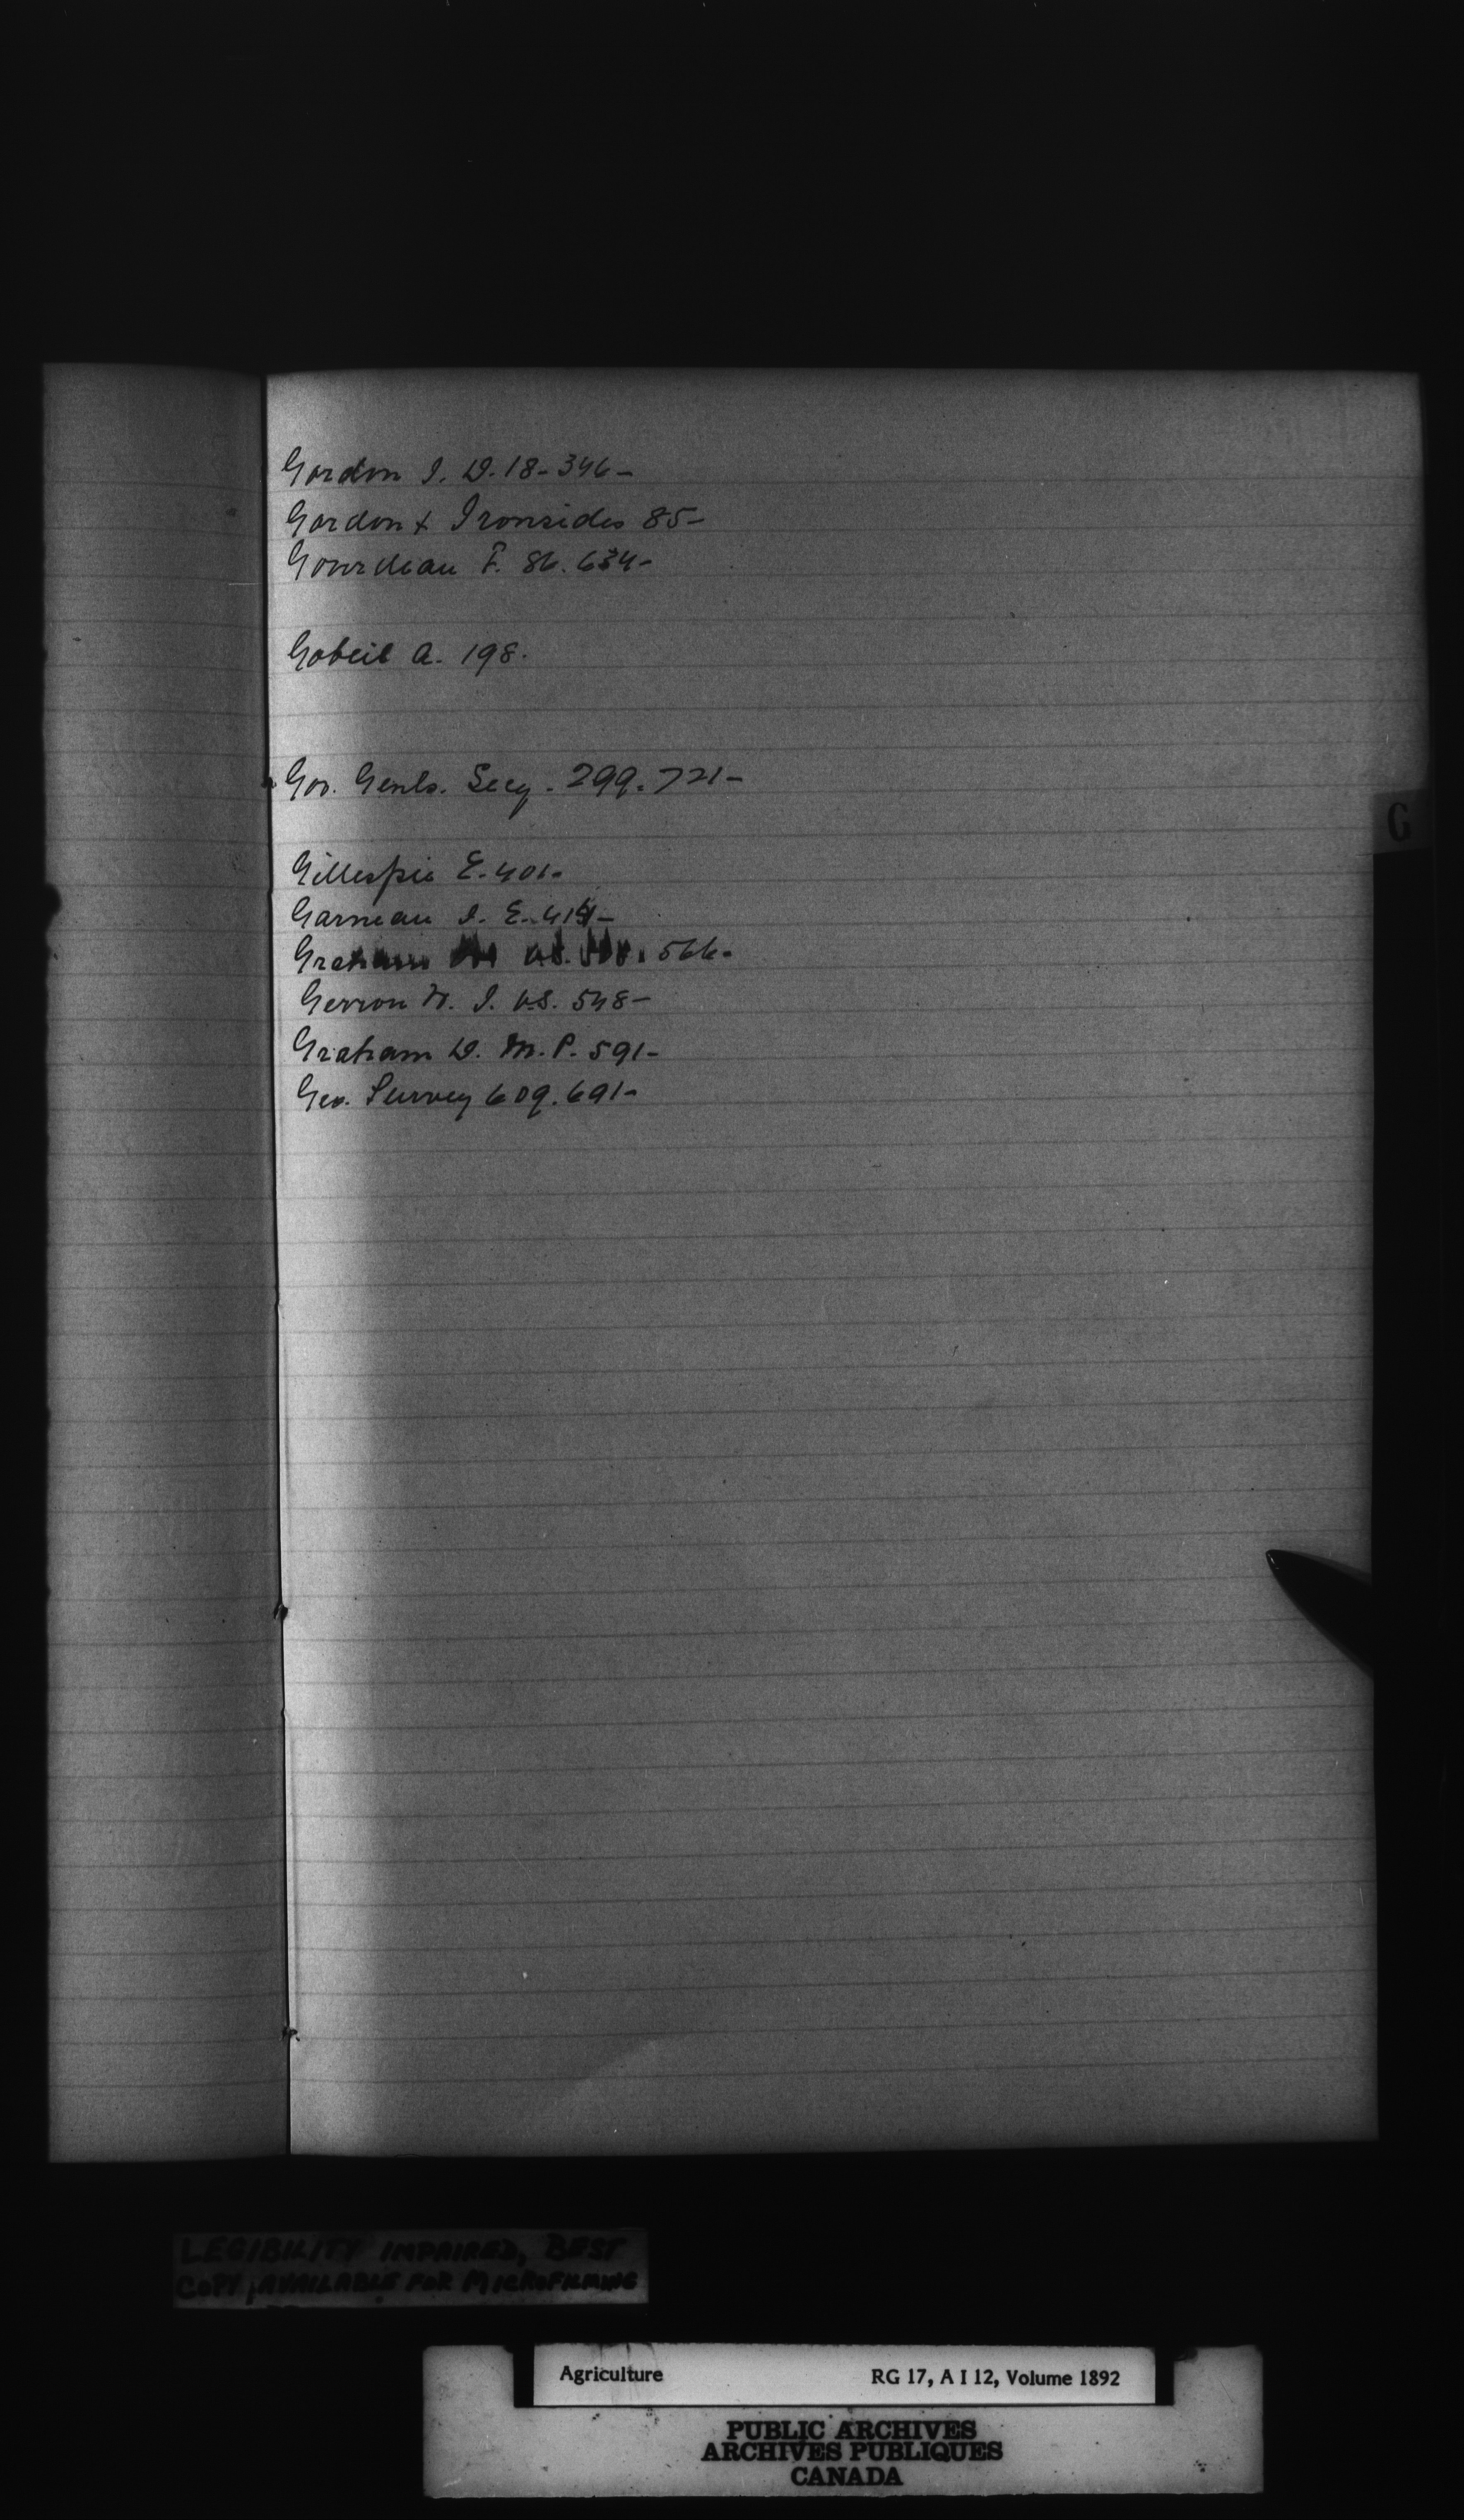 Gordon J. D. 18-346-
Gordon & Ironsides 85-
Gourdeau F. 86. 634-
Gobeil A. 198.
Gov. Genls. Secy. 299. 721-
G
Gillespie E. 401-
Garneau J. E. 414-
Graham 566-
Gerron J. V.S. 548-
Graham D. M. P. 591-
Geo. Survey 609. 691-
LEGIBILITY IMPAIRED, BEST
COPY AVAILABLE FOR MICROFILMING
Agriculture RG 17, A I 12, Volume 1892
PUBLIC ARCHIVES
ARCHIVES PUBLIQUES
CANADA